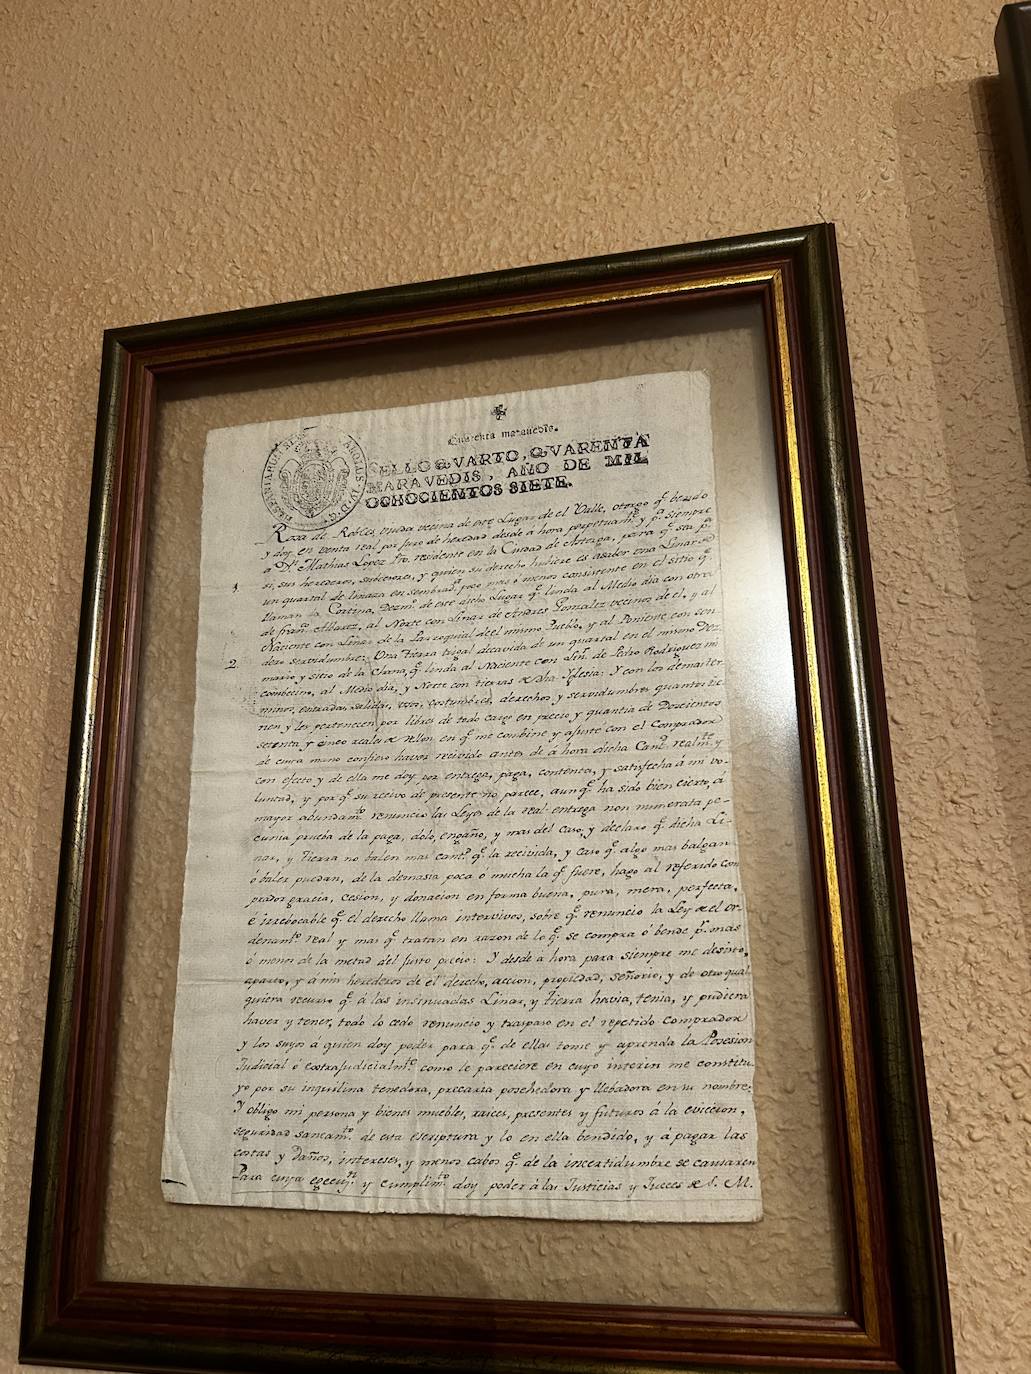 Quarenta marauedis.
SELLO QVARTO, QVARENTA
MARAVEDIS, AÑO DE MIL
OCHOCIENTOS SIETE.
HISPANIARUM REX CAROLUS IV D. G.
Rosa de Robles, viuda vecina de este Lugar de el Valle, otorgo q.e bendo
y doy en venta real por juro de heredad desde á hora perpetuam.te y p.a siempre
a D.n Mathias Lopez Pro. residente en la Ciudad de Astorga, para q.e sea p.a
si, sus herederos, subcesores, y quien su derecho hubiere es asaber una Linar de
1. un quartal de linaza en sembrad.a poco mas ó menos consistente en el sitio q.e
llaman la Cortina, Dezm.o de este dicho Lugar q.e linda al Medio dia con otra
de fran.co Alvarez, al Norte con Linar de Andres Gonzalez vecinos de el, y al
Naciente con Linar de la Parroquial de el mismo Pueblo, y al Poniente con sen-
2. dero servidumbre: Una tierra trigal decavida de un quartal en el mismo Dez-
mario y sitio de la Chana, q.e linda al Naciente con Lin.r de Pedro Rodriguez mi
combecino, al Medio dia, y Norte con tierras de dha Iglesia: Y con los demas ter-
minos, entradas, salidas, usos, costumbres, derechos y servidumbres quantos tie-
nen y les pertenecen por libres de todo cargo en precio y quantia de Doscientos
setenta y cinco reales de vellon, en q.e me combine y ajusté con el Comprador
de cuya mano confieso haver recivido antes de á hora dicha Cant.d realm.te y
con efecto y de ella me doy por entrega, paga, contenta, y satisfecha á mi vo-
luntad, y por q.e su recivo de presente no parece, aun q.e ha sido bien cierto, á
mayor abundam.to renuncio las Leyes de la real entrega non numerata pe-
cunia prueba de la paga, dolo, engaño, y mas del caso, y declaro q.e dicha Li-
nar, y tierra no balen mas cant.d q.e la recivida, y caso q.e algo mas balgan
ó baler puedan, de la demasia poca ó mucha la q.e fuere, hago al referido Com
prador gracia, cesion, y donacion en forma buena, pura, mera, perfecta,
é irrebocable q.e el derecho llama intervivos, sobre q.e renuncio la Ley de el or-
denam.to real y mas q.e tratan en razon de lo q.e se compra ó bende p.r mas
ó menos de la metad del justo precio: Y desde á hora para siempre me desisto,
aparto, y á mis herederos de el derecho, accion, propiedad, señorio, y de otro qual
quiera recurso q.e á las insinuadas Linar, y tierra havia, tenia, y pudiera
haver y tener, todo lo cedo renuncio y traspaso en el repetido Comprador
y los suyos á quien doy poder para q.e de ella tome y aprenda la Posesion
Judicial ó extrajudicialm.te como le pareciere en cuyo interin me constitu
yo por su inquilina tenedora, precaria poshedora y llebadora en su nombre:
Y obligo mi persona y bienes muebles, raices, presentes y futuros á la eviccion,
seguridad saneam.to de esta escriptura y lo en ella bendido, y á pagar las
costas y daños, intereses, y menos cabos q.e de la incertidumbre se causaren
Para cuya egecuz.n y cumplim.to doy poder á las Justicias y Jueces de S. M.